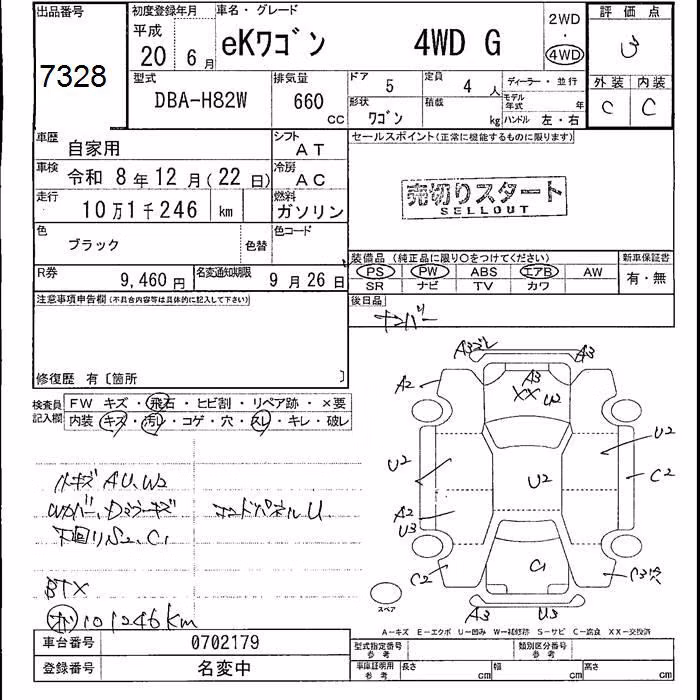 出品番号
7328
初度登録年月
平成
20 6月
車名・グレード
eKワゴン 4WD G
2WD
・
4WD
評価点
3
外装 内装
C C
型式
DBA-H82W
排気量
660 CC
ドア 5
定員 4 人
形状 ワゴン
積載 kg
ディーラー・並行
モデル年式 年
ハンドル 左・右
車歴 自家用
シフト AT
車検 令和 8年12月(22日)
冷房 AC
走行 10万1千246 km
燃料 ガソリン
色 ブラック
色替
色コード
R券 9,460円
名変通知期限 9月26日
セールスポイント(正常に機能するものに限ります)
売切りスタート
SELLOUT
装備品(純正品に限り〇をつけてください)
PS PW ABS エアB AW
SR ナビ TV カワ
新車保証書
有・無
後日品
ナンバー
注意事項申告欄(不具合内容等は具体的に記入して下さい)
修復歴 有〔箇所 〕
検査員記入欄
FW キズ・飛石・ヒビ割・リペア跡・×要
内装・キズ・汚レ・コゲ・穴・スレ・キレ・破レ
ルーキズ AU、W2
下回りS2、C1
コアパネルU
BTX
101246km
A3 A3
A2 A3 XX W2
U2 U2
U2 C2
A2
U3
C2 C1 C3
A3 U3
スペア
A―キズ E―エクボ U―凹み W―補修跡 S―サビ C―腐食 XX―交換済
車台番号 0702179
登録番号 名変中
型式指定番号 参考
類別区分番号 参考
車庫証明用 参考
長さ cm
幅 cm
高さ cm